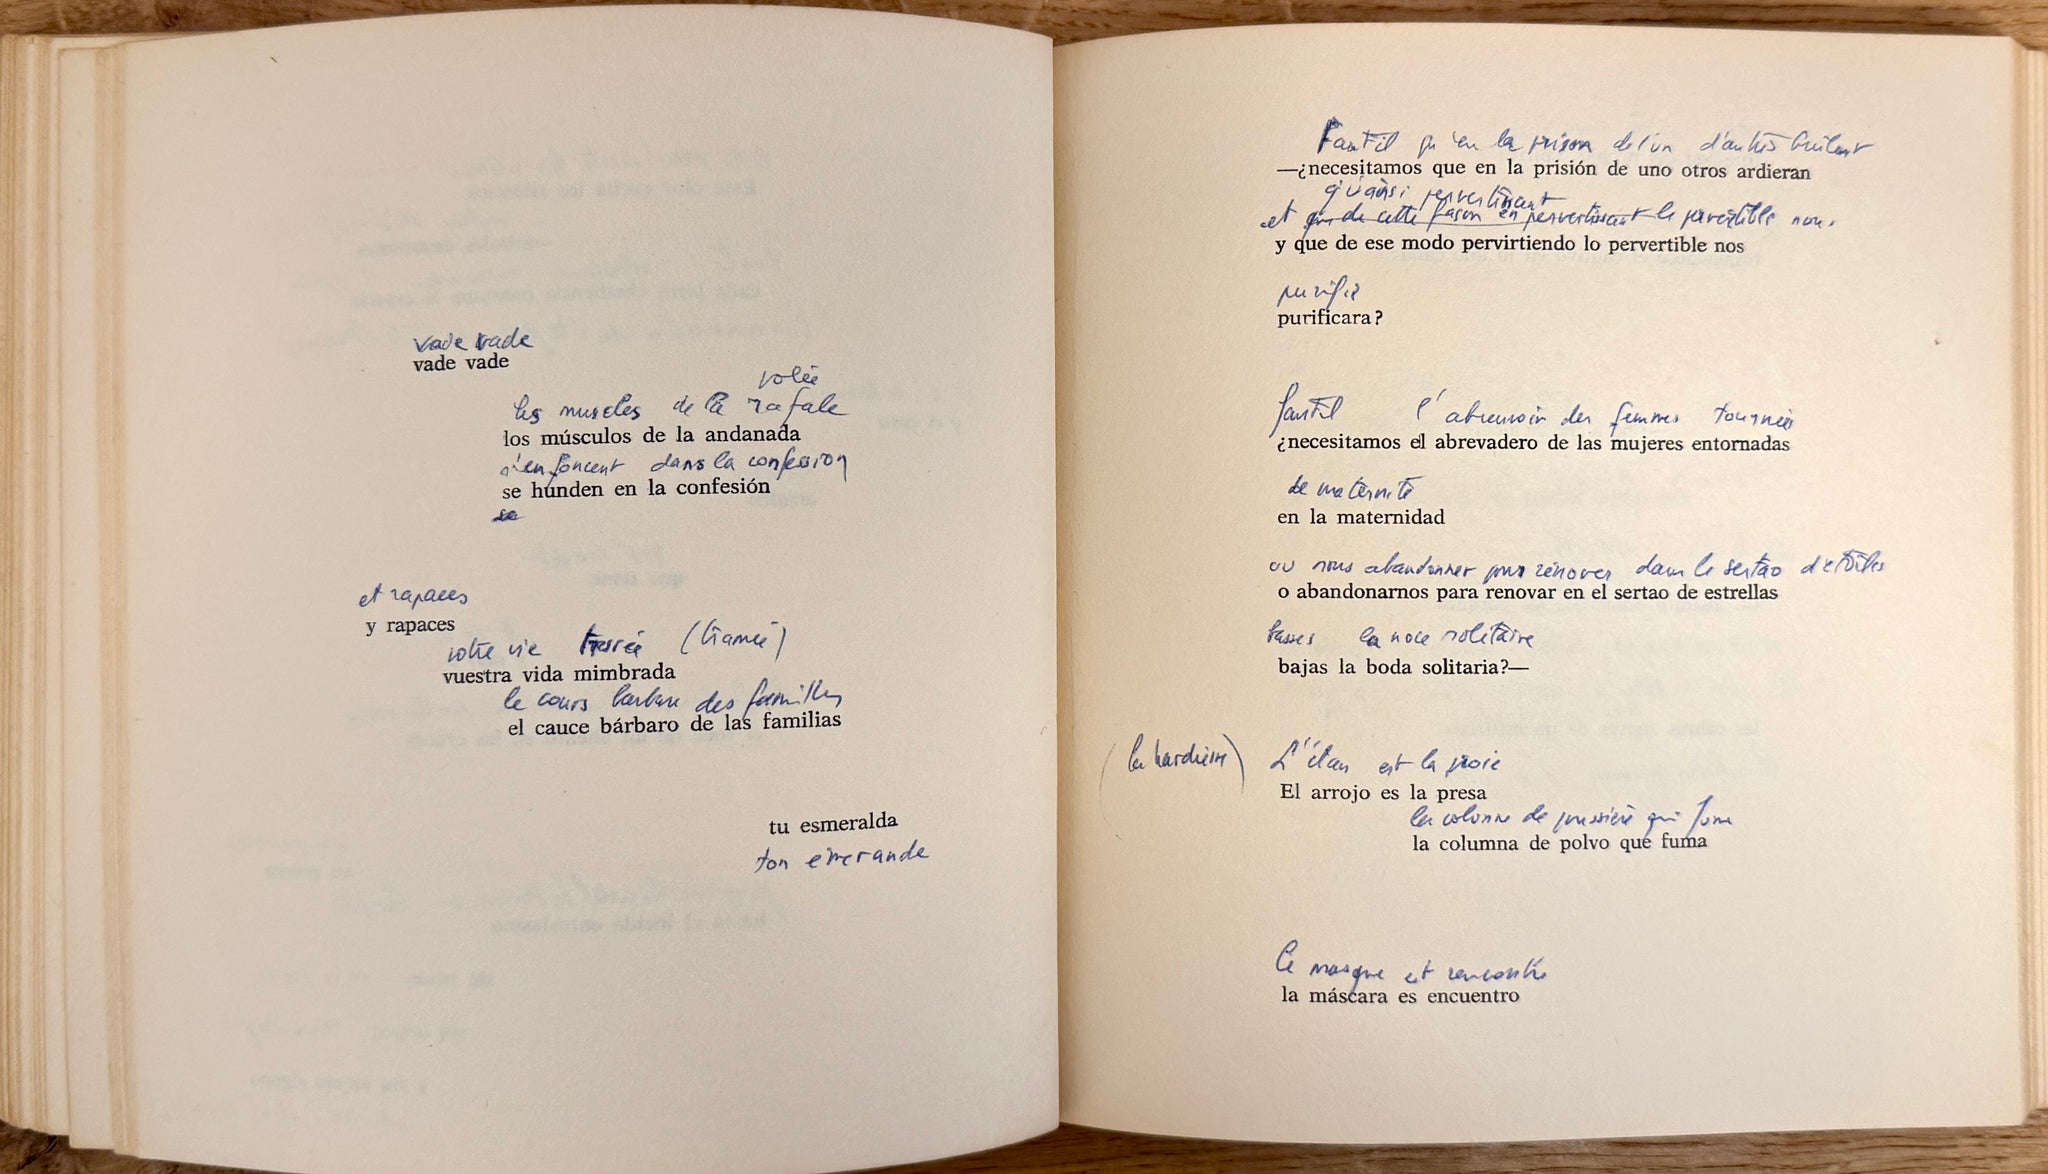 vade vade
vade vade
volée
les muscles de la rafale
los músculos de la andanada
s'enfoncent dans la confession
se hunden en la confesión
se
et rapaces
y rapaces
votre vie tressée (tramée)
vuestra vida mimbrada
le cours barbare des familles
el cauce bárbaro de las familias
tu esmeralda
ton émeraude
Faut il qu'en la prison de l'un d'autres brûlent
—¿necesitamos que en la prisión de uno otros ardieran
qu'ainsi pervertissant
et que de cette façon en pervertissant le pervertible nous
y que de ese modo pervirtiendo lo pervertible nos
purifie
purificara?
faut il l'abreuvoir des femmes tournées
¿necesitamos el abrevadero de las mujeres entornadas
de maternité
en la maternidad
ou nous abandonner pour rénover dans le sertao d'étoiles
o abandonarnos para renovar en el sertao de estrellas
basses la noce solitaire
bajas la boda solitaria?—
(la hardiesse) L'élan est la proie
El arrojo es la presa
la colonne de poussière qui fume
la columna de polvo que fuma
Le masque est rencontre
la máscara es encuentro